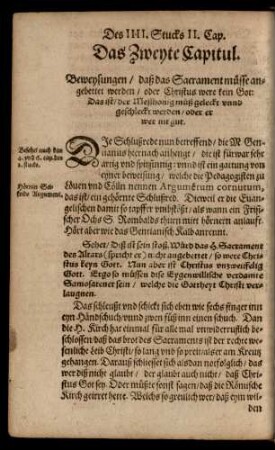 Des IIII. Stucks II. Cap.
Das Zweyte Capitul.
Beweysungen / daß das Sacrament müsse an-
gebettet werden / oder Christus were kein Got:
Das ist / der Meßhonig müß geleckt vnnd
geschleckt werden / oder er
wer nit gut.
Beschet auch den
4. vnd 6. cap. des
2. stucks.
DJe Schlußrede nun betreffend / die M. Gen-
tianus hiernach anhengt / die ist fürwar sehr
artig vnd spitzsinnig: vnnd ist ein gattung von
eyner beweisung / welche die Pedagogisten zu
Löuen vnd Cölln nennen Argumentum cornutum,
das ist / ein gehörnte Schlußred. Dieweil er die Euan-
gelischen damit so tapffer vmbstoßt / als wann ein Frisi-
scher Ochs S. Rombalds thurn mit hörnern anlauft.
Hört aber wie das Gentianisch Kalb anrennt.
Hörnin Ge-
Argument.
Sehet / Diß ist sein stoß. Würd das H. Sacrament
des Altars (spricht er) nicht angebettet / so were Chri-
stus keyn Gott. Nun aber ist Christus vnzweiffelig
Gott. Ergo so müssen die Eygenwillische verdamte
Samosatener sein / welche die Gottheyt Christi ver-
laugnen.
Das schleußt vnd schickt sich eben wie sechs finger inn
eyn Händschuch / vnnd zwen füß inn einen schuch. Dan
die H. Kirch hat einmal für alle mal vnwiderruflich be-
schlossen daß das brot des Sacraments ist der rechte we-
senliche leib Christi / so lang vnd so preyt als er am Kreutz
gehangen. Darauß schliesset sich alsdan notfolglich / das
wer diß nicht glaubt / der glaubt auch nicht / daß Chri-
stus Got sey. Oder müßte sonst sagen / daß die Römische
Kirch geirret hette. Welchs so greulich wer / daß eyn wil-
den